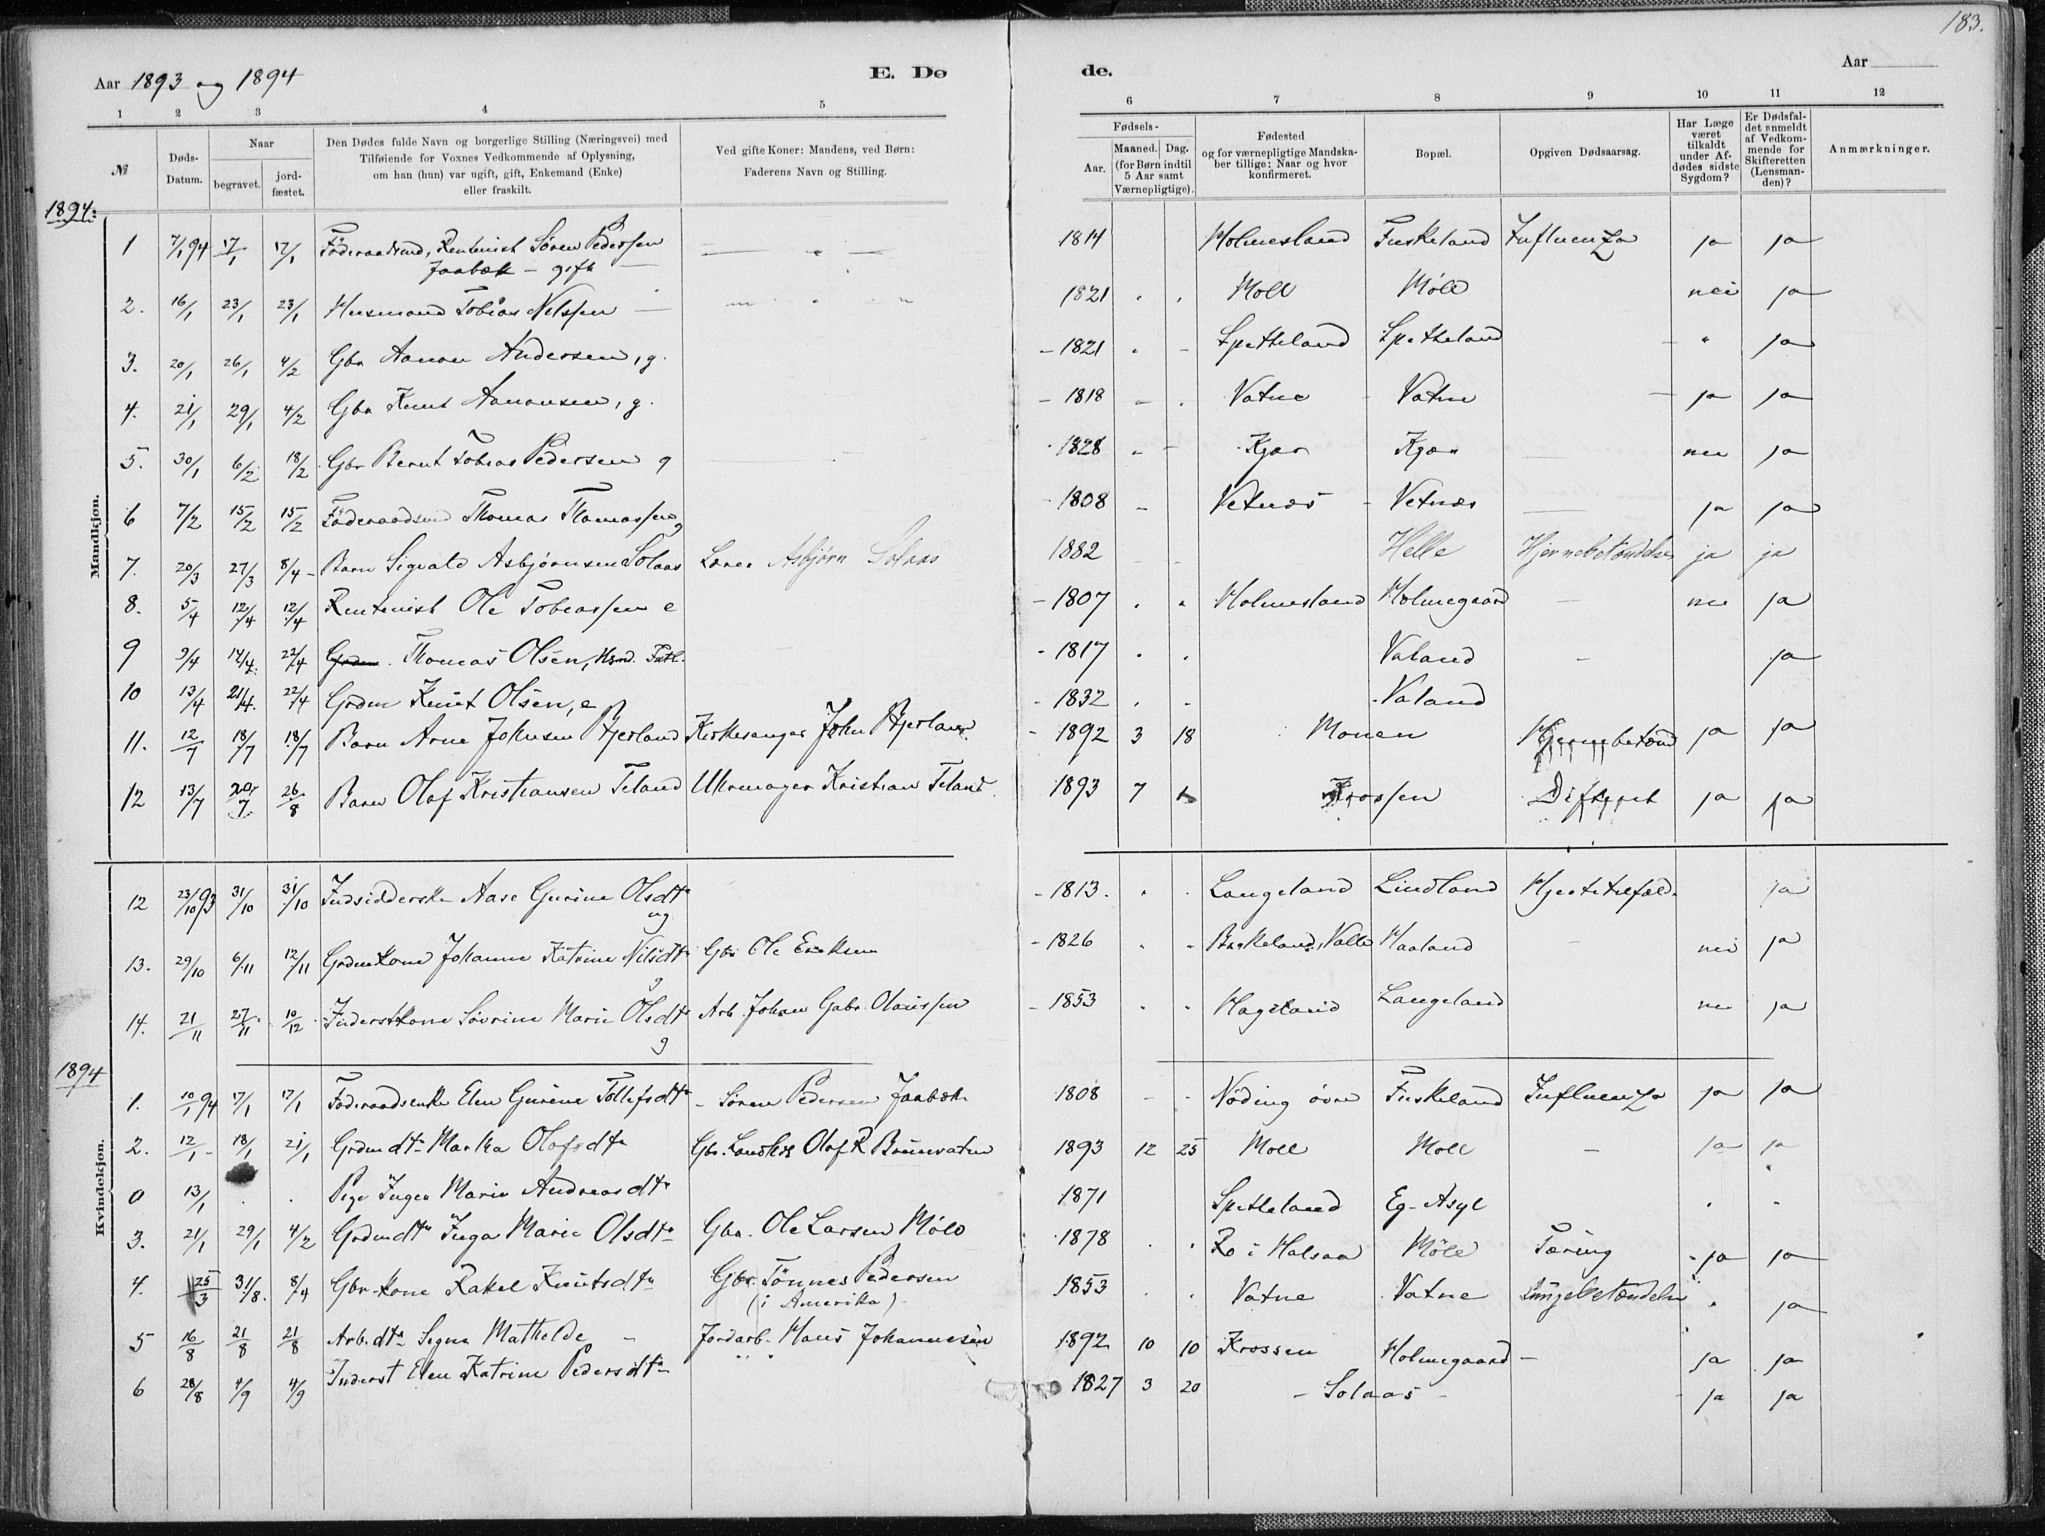 183.
Aar 1893 og 1894 E. Dø de. Aar
1 2 3 4 5 6 7 8 9 10 11 12
№ Døds-Datum. Naar begravet. jordfæstet. Den Dødes fulde Navn og borgerlige Stilling (Næringsvei) med Tilføiende for Voxnes Vedkommende af Oplysning, om han (hun) var ugift, gift, Enkemand (Enke) eller fraskilt. Ved gifte Koner: Mandens, ved Børn: Faderens Navn og Stilling. Fødsels- Aar. Maaned. Dag. (for Børn indtil 5 Aar samt Værnepligtige). Fødested og for værnepligtige Mandskaber tillige: Naar og hvor konfirmeret. Bopæl. Opgiven Dødsaarsag. Har Læge været tilkaldt under Afdødes sidste Sygdom? Er Dødsfaldet anmeldt af Vedkommende for Skifteretten (Lensmanden)? Anmærkninger.
1894:
Mandkjøn.
1 7/1 94 17/1 17/1 Føderaadsmd, Rentenist Søren Pedersen 1814 Holmesland Fuskeland Influenza ja ja
Jaabæk – gift
2. 16/1 23/1 23/1 Husmand Tobias Nilssen 1821 Moll Möll nei ja
3. 20/1 26/1 4/2 Gbr Aanon Andersen, g. 1821 Spetteland Spetteland " ja
4. 21/1 29/1 4/2 Gbr Knut Aanonsen, g. 1818 Vatne Vatne ja ja
5. 30/1 6/2 18/2 Gbr Bernt Tobias Pedersen g 1828 Kjær Kjær nei ja
6 7/2 15/2 15/2 Föderaadsmd Thomas Thomassen g 1808 Vetnes Vetnes ja ja
7. 20/3 27/3 8/4 Barn Sigvald Asbjørnsen Solaas Lærer Asbjørn Solaas 1882 Helle Hjernebetændelse ja ja
8. 5/4 12/4 12/4 Rentenist Ole Tobiassen e 1807 Holmesland Holmegaard nei ja
9 9/4 14/4. 22/4 Thomas Olsen, Hsmd. Fatl. 1817 Valand ja
10 13/4 21/4. 22/4 Grdm Knut Olsen, e 1832 Valand
11. 12/7 18/7 18/7 Barn Arne Johnsen Bjerland Kirkesanger John Bjerland 1892 3 18 Monen Hjernebetænd ja ja
12 13/7 20/7 26/8 Barn Olof Kristiansen Teland Uhrmager Kristian Teland 1893 7 Krossen Difterit ja ja
12 23/10 93 31/10 31/10 Indsidderske Aase Gurine Olsdtr 1813. Langeland Lindland Hjertetilfæld. ja
ug.
13. 29/10 6/11 12/11 Grdmkone Johanne Katrine Nilsdtr Gbr Ole Eriksen 1826 Birkeland, Valle Haaland nei ja
g
14. 21/11 27/11 10/12 Inderstkone Sövrine Marie Olsdtr Arb. Johan Gabr. Olaussen 1853 Hageland Langeland nei ja
g
1894
Kvindekjøn.
1. 10/1 94 17/1 17/1 Föderaadsenke Elen Gurine Tollefsdtr Søren Pedersen Jaabæk 1808 Nöding övre Fuskeland Influenza ja ja
2. 12/1 18/1 21/1 Grdmdtr Marka Olofsdtr Gbr. Olof R 1893 12 25 Moll Möll ja ja
0 13/1 Pige Inger Marie Andreasdtr 1871 Spetteland Eg-Asyl
3. 21/1 29/1 4/2 Grdmdtr Inga Marie Olsdtr Gbr. Ole Larsen Möll 1878 Ro i Halsaa Möll Tæring ja ja
4. 25/3 31/8. 8/4 Gbr kone Rakel Knutsdtr Gbr. Tönnes Pedersen 1853 Vatne Vatne Lungebetændelse " ja
(i Amerika)
5 16/8 21/8 21/8 Arb.dtr Signe Mathilde Jordarb. Hans Johannesen 1892 10 10 Krossen Holmegaard ja ja
6 28/8 4/9 4/9 Inderst Elen Katrine Pedersdtr 1827 3 20 Solaas ja ja